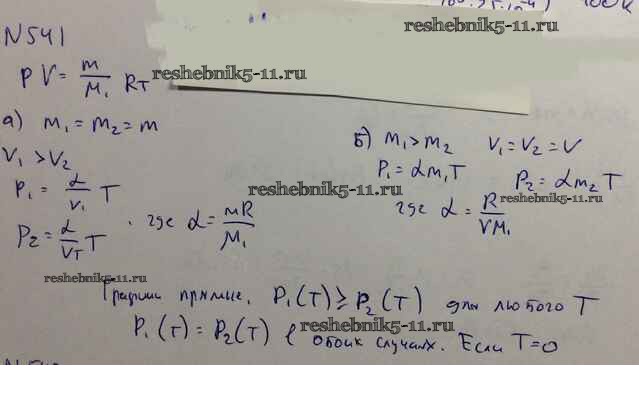 N541
reshebnik5-11.ru
PV = m/M₁ RT
reshebnik5-11.ru
а) m₁ = m₂ = m
V₁ > V₂
P₁ = α/V₁ T
P₂ = α/VT T , где α = mR/M₁
reshebnik5-11.ru
б) m₁ > m₂ V₁ = V₂ = V
P₁ = αm₁T P₂ = αm₂T
где α = R/VM₁
reshebnik5-11.ru
reshebnik5-11.ru
Графики прямые, P₁(T) ≥ P₂(T) для любого T
P₁(T) = P₂(T) в обоих случаях. Если T=0
reshebnik5-11.ru